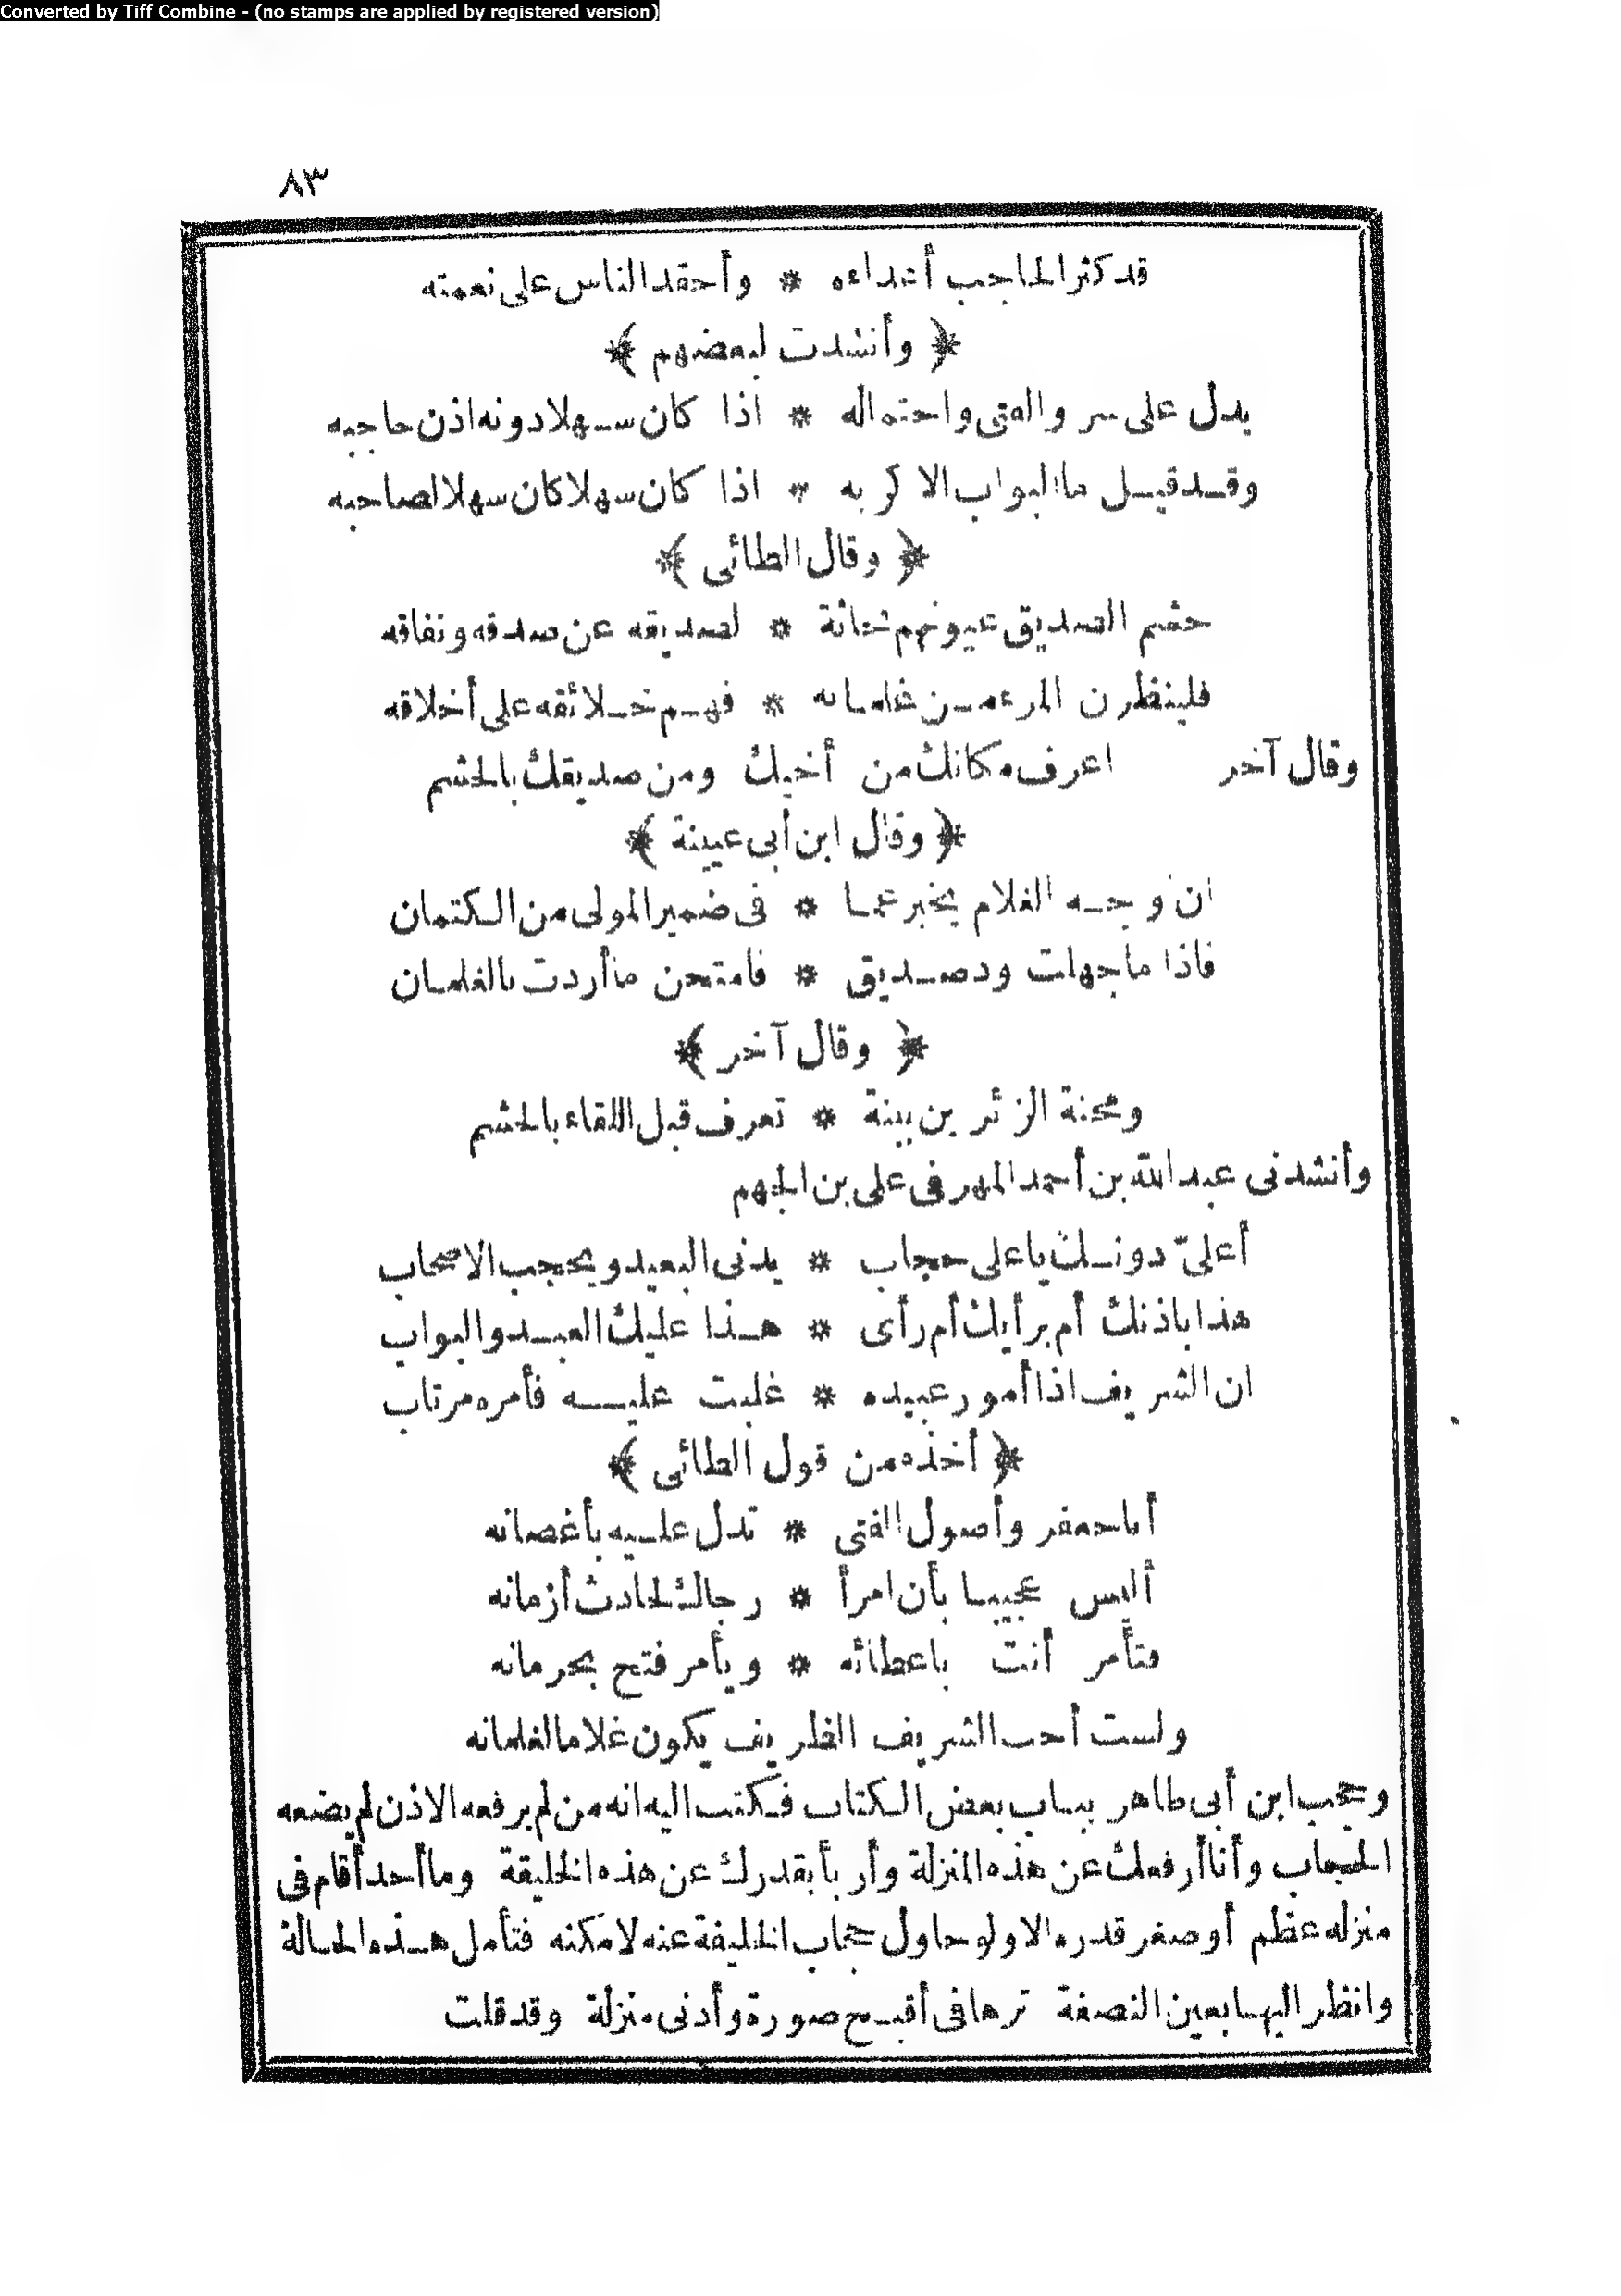 Converted by Tiff Combine - (no stamps are applied by registered version)
٨٣
قد كثر الحاجب أعداءه * وأحقد الناس على نعمته
﴿ وأنشدت لبعضهم ﴾
يدل على سرو الفتى واحتماله * اذا كان سهلا دونه اذن حاجبه
وقد قيل ما البواب الا كربه * اذا كان سهلا كان سهلا لصاحبه
﴿ وقال الطائى ﴾
حشم الصديق عيونهم بحاثة * لصديقه عن صدقه ونفاقه
فلينظرن المرء من غلمانه * فهم خلائقه على أخلاقه
وقال آخر اعرف مكانك من أخيك ومن صديقك بالحشم
﴿ وقال ابن أبى عيينة ﴾
ان وجه الغلام يخبر عما * فى ضمير المولى من الكتمان
فاذا ما جهلت ود صديق * فامتحن ما أردت بالغلمان
﴿ وقال آخر ﴾
ومحنة الزئرين بينة * تعرف قبل اللقاء بالحشم
وأنشدنى عبد الله بن أحمد المهر فى على بن الجهم
أعلىّ دونك ياعلى حجاب * يدنى البعيد ويحجب الاصحاب
هذا باذنك أم برأيك أم رأى * هذا عليك العبد والبواب
ان الشريف اذا أمور عبيده * غلبت عليه فأمره مرتاب
﴿ أخذه من قول الطائى ﴾
أبا جعفر وأصول الفتى * تدل عليه بأغصانه
أليس عجيبا بأن امرأ * رجاك لحادث أزمانه
فتأمر أنت باعطائه * ويأمر فتح بحرمانه
ولست أحب الشريف الظريف يكون غلاما لغلمانه
وحجب ابن أبى طاهر بباب بعض الكتاب فكتب اليه انه من لم يرفعه الاذن لم يضعه
الحجاب وأنا أرفعك عن هذه المنزلة وأربأ بقدرك عن هذه الخليقة وما أحد أقام فى
منزله عظم أو صغر قدره الا ولو حاول حجاب الخليفة عنه لامكنه فتأمل هذه الحالة
وانظر اليها بعين النصفة ترها فى أقبح صورة وأدنى منزلة وقد قلت